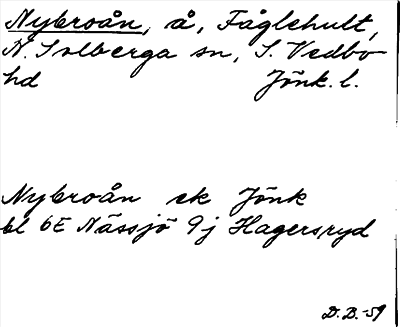 Nybroån, å, Fåglehult,
N. Solberga sn, S. Vedbo
hd Jönk. l.
Nybroån ek Jönk
bl 6E Nässjö 9j Hagersryd
D.B.-59